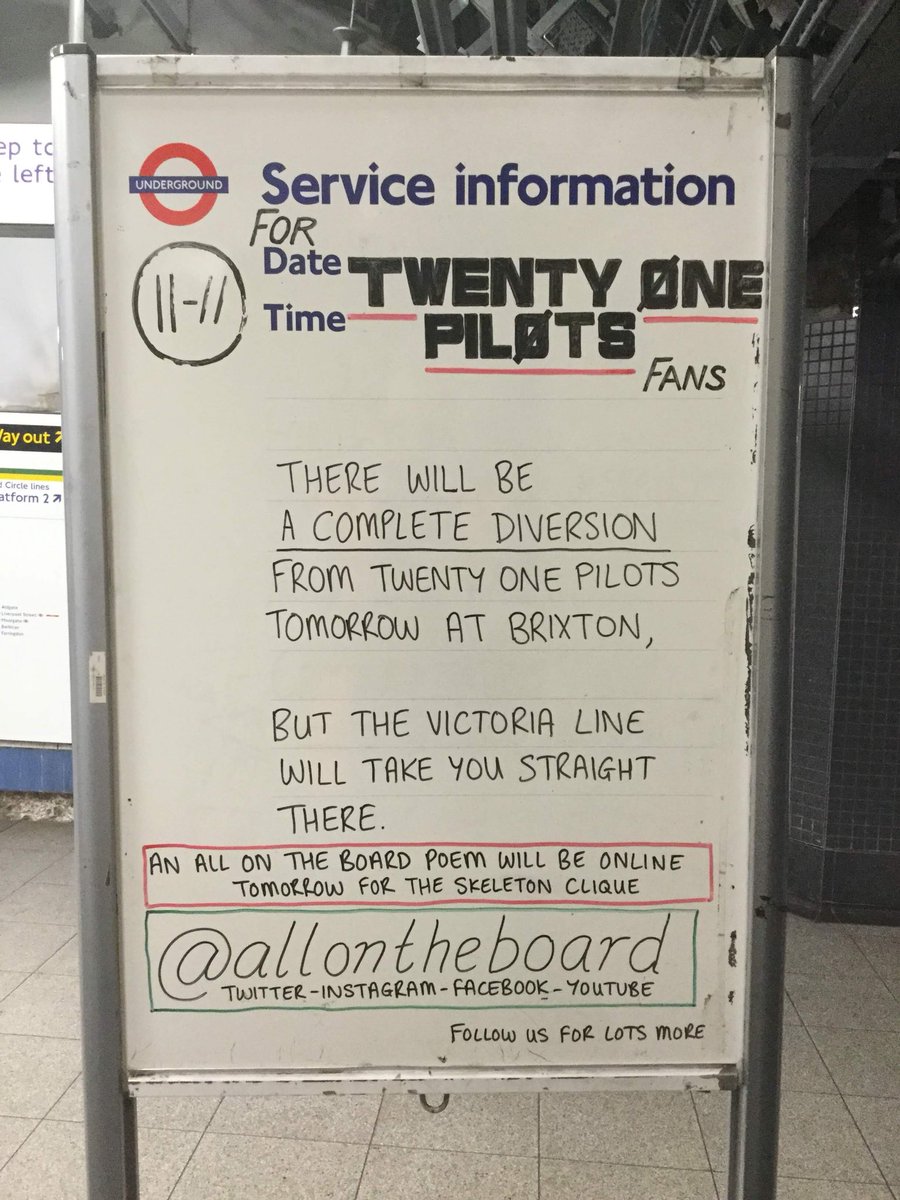 ep to
e left
UNDERGROUND
Service information
FOR
||-//
Date
Time
TWENTY ØNE
PILØTS
FANS
Way out
d Circle lines
atform 2
THERE WILL BE
A COMPLETE DIVERSION
FROM TWENTY ONE PILOTS
TOMORROW AT BRIXTON,
BUT THE VICTORIA LINE
WILL TAKE YOU STRAIGHT
THERE.
AN ALL ON THE BOARD POEM WILL BE ONLINE
TOMORROW FOR THE SKELETON CLIQUE
@allontheboard
TWITTER-INSTAGRAM-FACEBOOK-YOUTUBE
FOLLOW US FOR LOTS MORE